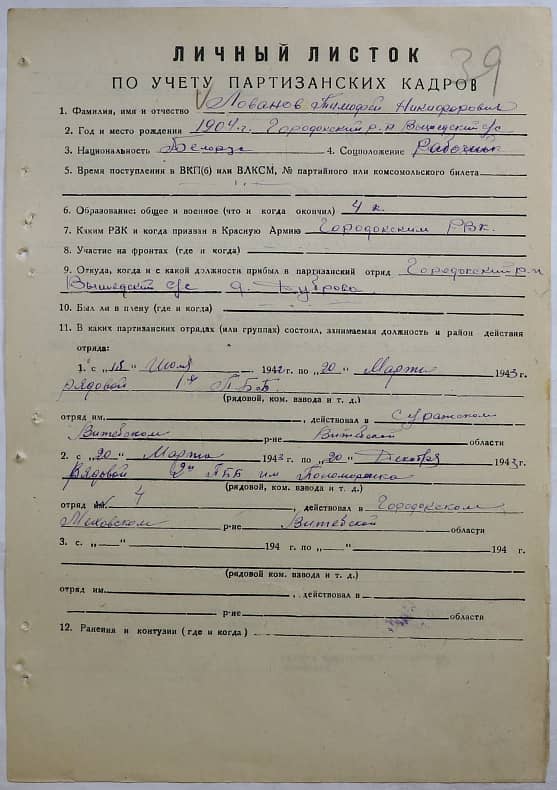 39
ЛИЧНЫЙ ЛИСТОК
ПО УЧЕТУ ПАРТИЗАНСКИХ КАДРОВ
1. Фамилия, имя и отчество Лованов Тимофей Никифорович
2. Год и место рождения 1904 г. Городокский р-н Вышедский с/с
3. Национальность Белорус 4. Соцположение Рабочий
5. Время поступления в ВКП(б) или ВЛКСМ, № партийного или комсомольского билета
6. Образование: общее и военное (что и когда окончил) 4 к.
7. Каким РВК и когда призван в Красную Армию Городокским РВК.
8. Участие на фронтах (где и когда)
9. Откуда, когда и с какой должности прибыл в партизанский отряд Городокский р-н
Вышедский с/с д. Дуброва
10. Был ли в плену (где и когда)
11. В каких партизанских отрядах (или группах) состоял, занимаемая должность и район действия
отряда:
1. с „15" Июля 1942 г. по „20" Марта 1943 г.
рядовой 1я ПББ.
(рядовой, ком. взвода и т. д.)
отряд им. , действовал в Суражском
Витебском р-не Витебской области
2. с „20" Марта 1943 г. по „20" Декабря 1943 г.
Рядовой 2я ПББ им Пономаренко
(рядовой, ком. взвода и т. д.)
отряд им. 4 , действовал в Городокском
Меховском р-не Витебской области
3. с „ " 194 г. по „ " 194 г.
(рядовой, ком. взвода и т. д.)
отряд им. , действовал в
р-не области
12. Ранения и контузии (где и когда)